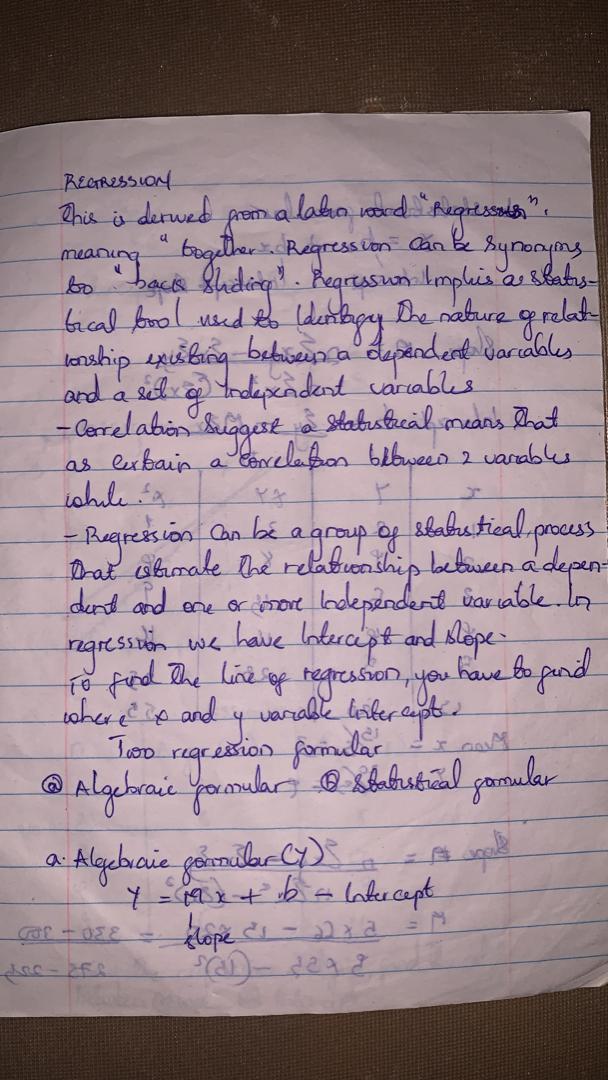 REGRESSION
This is derived from a latin word "Regressus".
meaning " together. Regression can be synonyms
to "back sliding". Regression Implies a statis-
tical tool used to Identify the nature of relat-
ionship existing between a dependent variables
and a set of Independent variables
- Correlation Suggest a statistical means that
as certain a correlation between 2 variables
while.
- Regression Can be a group of statistical process
that estimate the relationship between a depen-
dent and one or more Independent variable. In
regression we have Intercept and slope.
To find the line of regression, you have to find
where x and y variable Intercept.
Two regression formular
ⓐ Algebraic formular ⓑ statistical formular
a. Algebraic formular (Y)
Y = mx + b - Intercept
slope